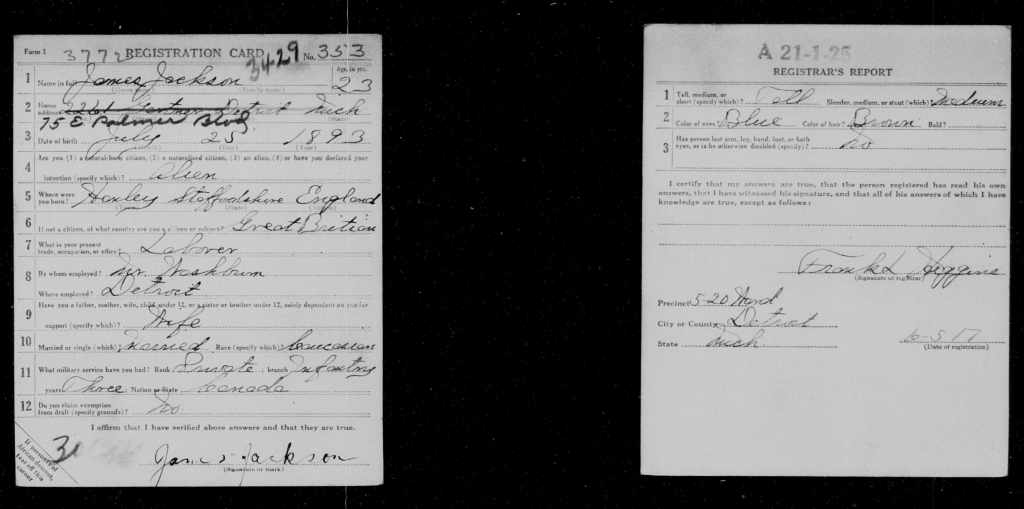 Form 1 3772 REGISTRATION CARD 3429 No. 353
1 Name in full James Jackson Age, in yrs. 23
2 Home address Detroit Mich
75 E. Palmer Blvd
3 Date of birth July 25 1893
4 Are you (1) a natural-born citizen, (2) a naturalized citizen, (3) an alien, (4) or have you declared your
intention (specify which)? Alien
5 Where were you born? Hanley Staffordshire England
6 If not a citizen, of what country are you a citizen or subject? Great Britian
7 What is your present trade, occupation, or office? Laborer
8 By whom employed? Mr. Washburn
Where employed? Detroit
9 Have you a father, mother, wife, child under 12, or a sister or brother under 12, solely dependent on you for
support (specify which)? Wife
10 Married or single (which)? Married Race (specify which)? Caucasian
11 What military service have you had? Rank Private ; branch Infantry
years Three ; Nation or State Canada
12 Do you claim exemption from draft (specify grounds)? No
I affirm that I have verified above answers and that they are true.
James Jackson
(Signature or mark)
If person is of African descent, tear off this corner
A 21-1-25
REGISTRAR'S REPORT
1 Tall, medium, or short (specify which)? Tall Slender, medium, or stout (which)? Medium
2 Color of eyes? Blue Color of hair? Brown Bald?
3 Has person lost arm, leg, hand, foot, or both eyes, or is he otherwise disabled (specify)? No
I certify that my answers are true, that the person registered has read his own
answers, that I have witnessed his signature, and that all of his answers of which I have
knowledge are true, except as follows:
Frank L. Higgins
(Signature of registrar)
Precinct 5-20 Ward
City or County Detroit
State Mich
6-5 17
(Date of registration)